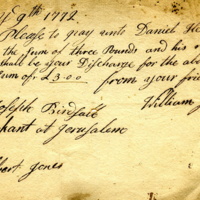 9th 1772
Please to pay unto Daniel
the sum of three Pounds and his
shall be your Discharge for the abo
sum of £3"0"0 from your frien
Joseph Birdsall William
chant at Jerusalem
bert Jones